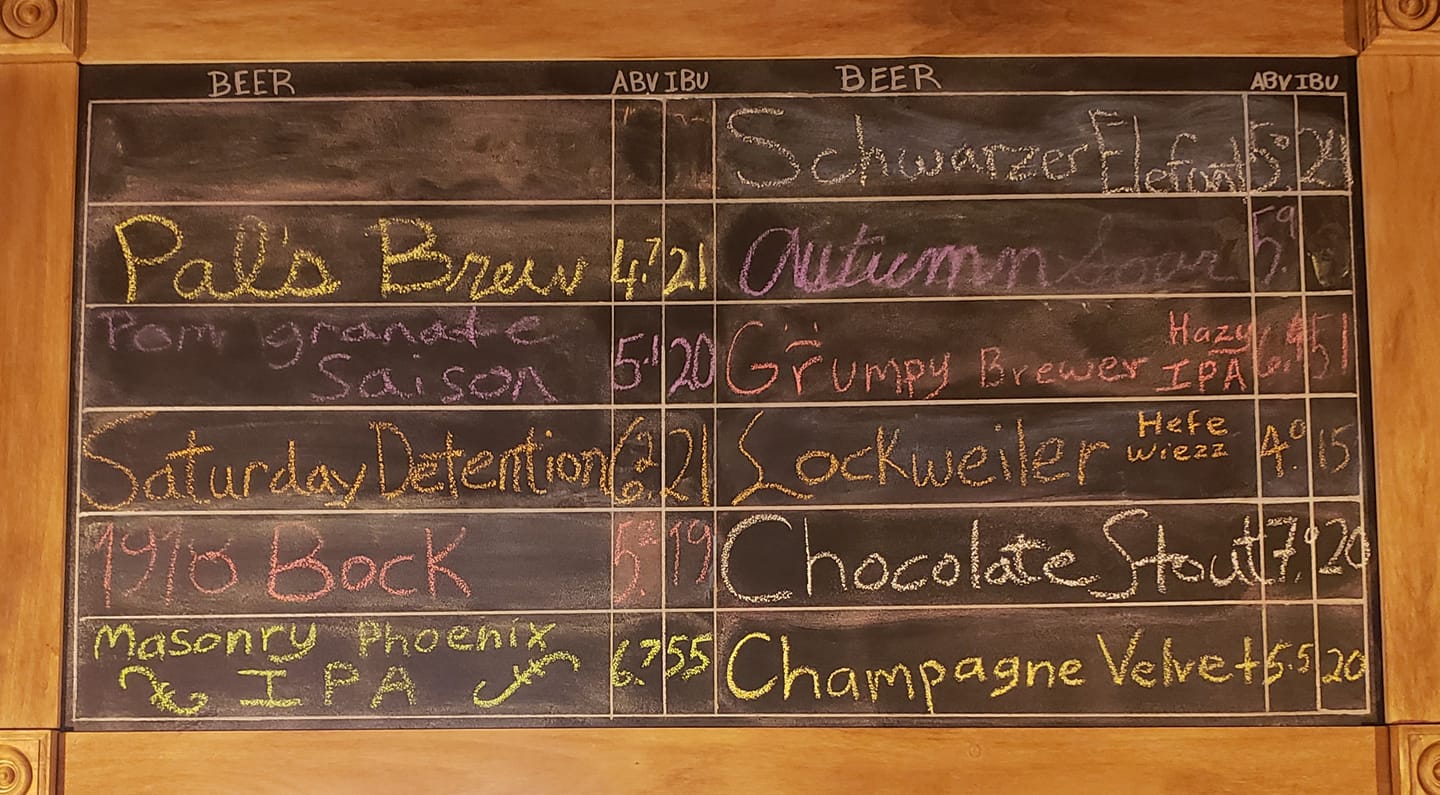 BEER ABV IBU
Pal's Brew 4.7 21
Pom granate
Saison 5.1 20
Saturday Detention 6.2 21
1916 Bock 5.2 19
Masonry Phoenix
IPA 6.7 55
BEER ABV IBU
Schwarzer Elefant 5.0 24
Autumn Sour 5.9
Grumpy Brewer Hazy
IPA 51
Lockweiler Hefe
Wiezz 4.0 15
Chocolate Stout 7.0 20
Champagne Velvet 5.5 20